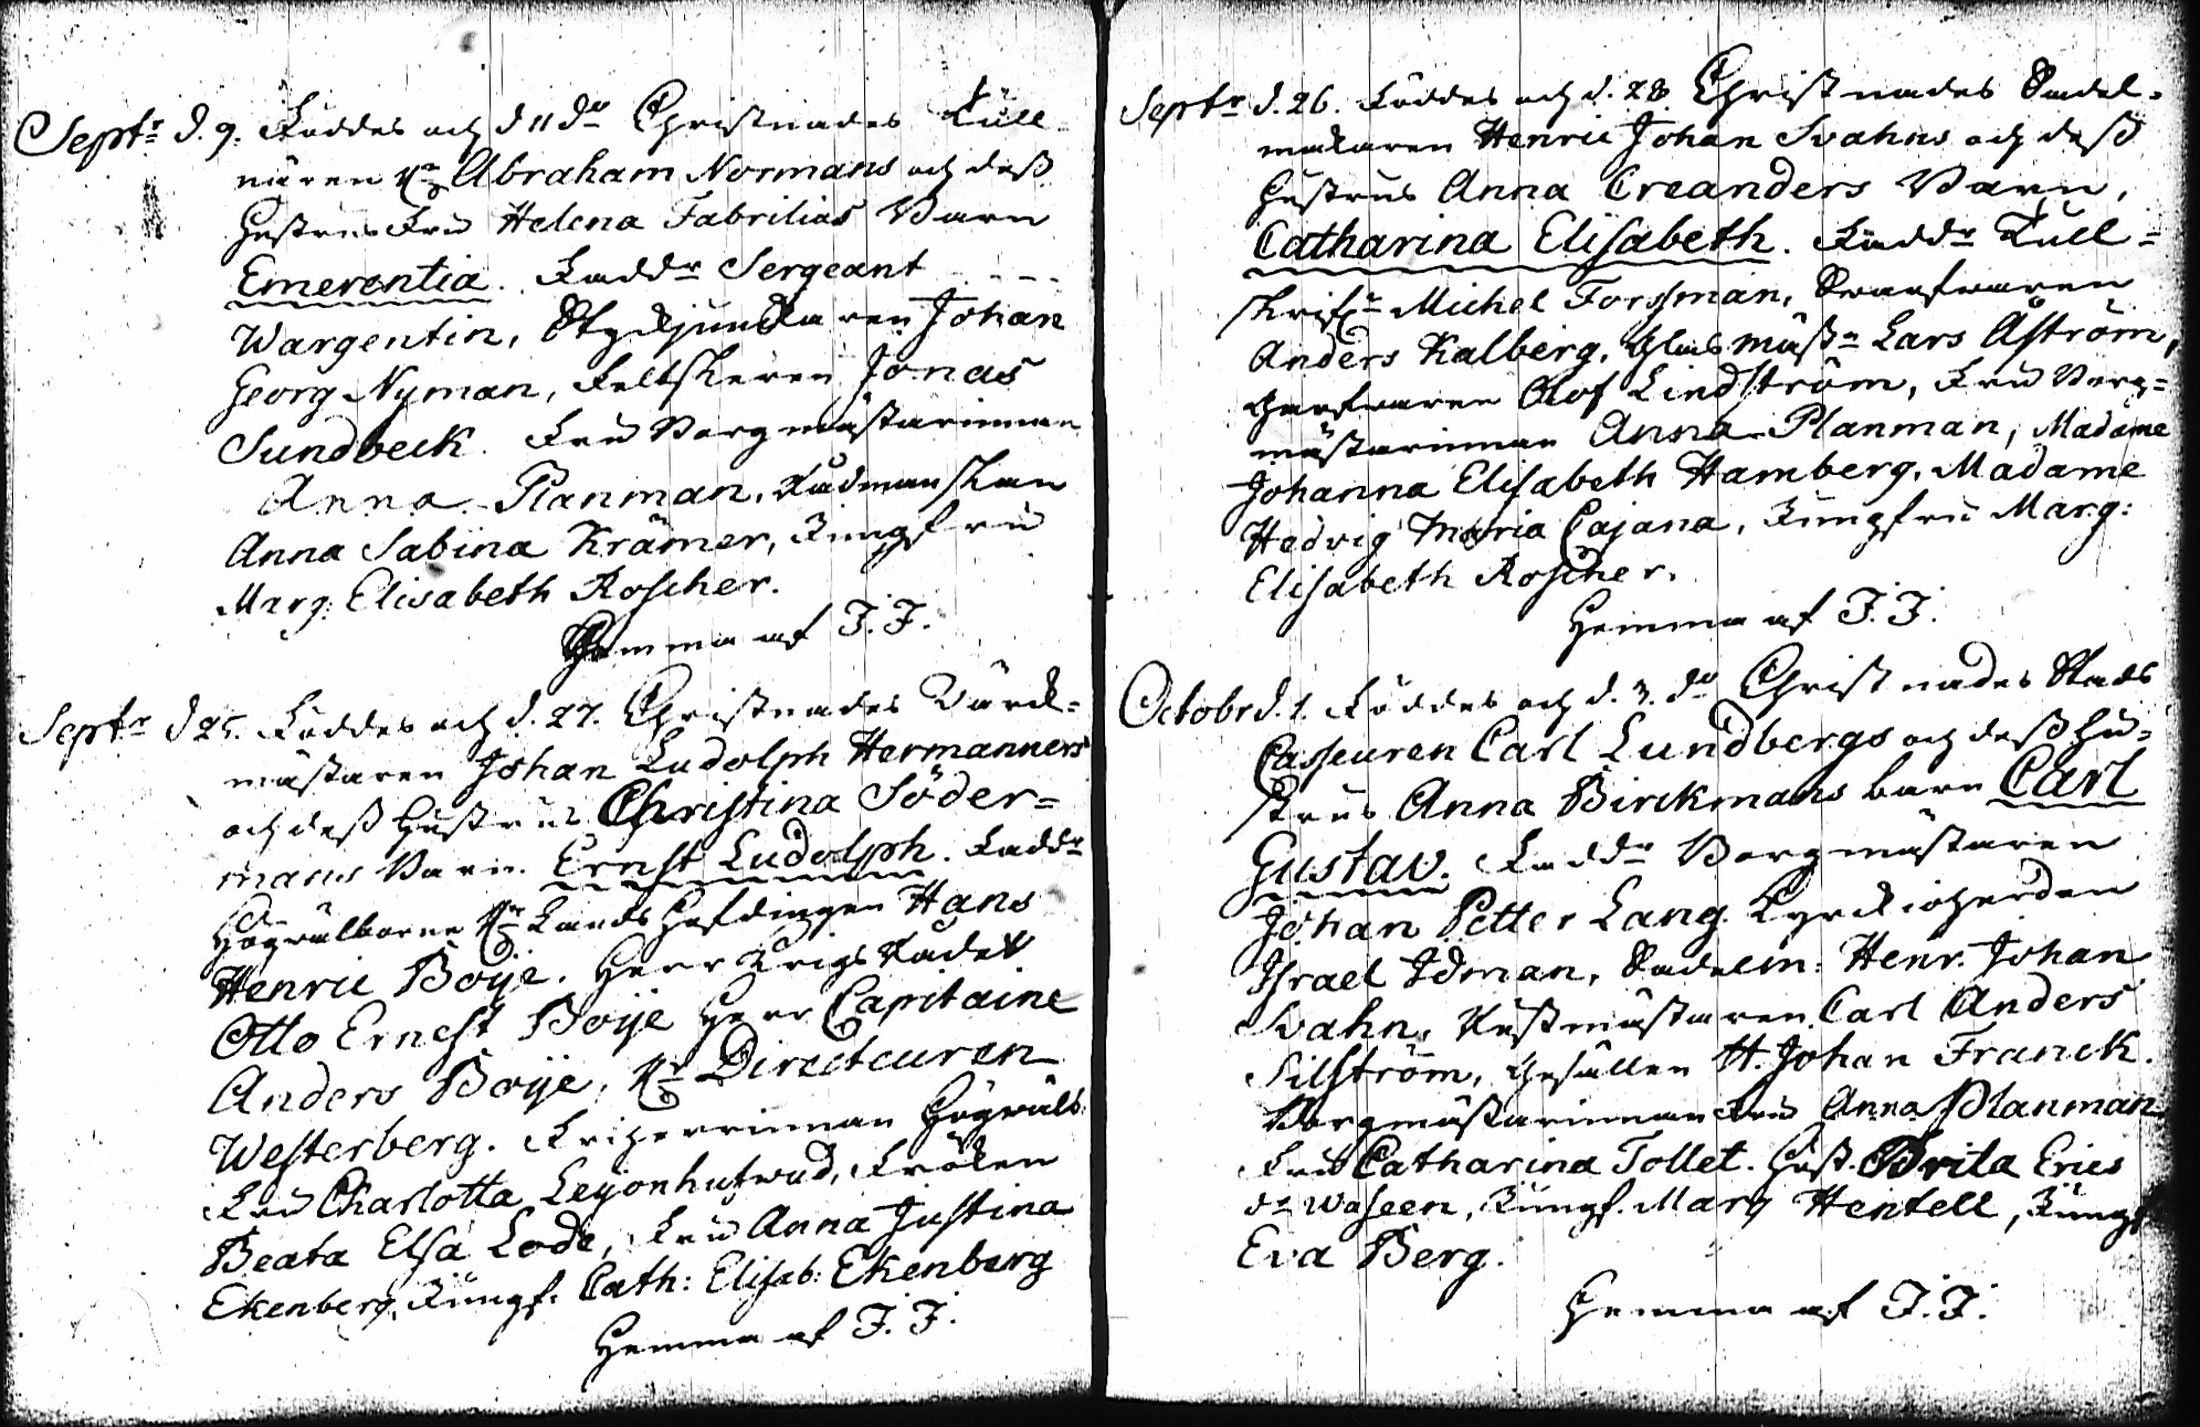 Septr d. 9. Föddes och d 11 do Christnades Tull-
nären Hr Abraham Normans och dess
Hustrus Fru Helena Fabrilias Barn
Emerentia. Faddr Sergeant - - -
Wargentin, Styckjunkaren Johan
Georg Nyman, Feltskeren Jonas
Sundbeck. Fru Borgmästarinnan
Anna Planman, Rådmanskan
Anna Sabina Krämer, Jungfru
Marg: Elisabeth Roscher.
Hemma af J. J.
Septr d 25. Föddes och d. 27. Christnades Värck-
mästaren Johan Ludolph Hermanners
och dess Hustrus Christina Söder=
mans Barn. Ernst Ludolph. Faddr
Högvälborne Hr Lands Höfdingen Hans
Henric Boije. Herr Krigs Rådet
Otto Ernest Boije Herr Capitaine
Anders Boije, Hr Directeuren
Westerberg. Friherrinnan Högvälb:
Fru Charlotta Leijonhufwud, Fröken
Beata Elsa Lode, Fru Anna Justina
Ekenberg, Jungf. Cath: Elisab: Ekenberg
Hemma af J. J.
Septr d. 26. Föddes och d. 28. Christnades Sadel-
makaren Henric Johan Svahns och dess
Hustrus Anna Creanders Barn,
Catharina Elisabeth. Faddr Tull=
skrifr Michel Forssman, Svarfvaren
Anders Kalberg, Glas mäst. Lars Åström,
Garfvaren Olof Lindström, Fru Borg=
mästarinnan Anna Planman, Madame
Johanna Elisabeth Hamberg, Madame
Hedvig Maria Cajana, Jungfru Marg:
Elisabeth Roscher.
Hemma af J. J.
Octobr d. 1. Föddes och d. 3. do Christnades Stads
Casseuren Carl Lundbergs och dess Hu=
strus Anna Birckmans barn Carl
Gustav. Faddr Borgmästaren
Johan Petter Lang. Kyrckioherden
Israel Idman, Sadelm: Henr. Johan
Svahn, Rustmästaren Carl Anders
Silström, Gesällen H. Johan Franck.
Borgmästarinnan Fru Anna Planman
Fru Catharina Tollet. Hust. Brita Erics
dr Waseen, Jungf. Marg Hentell, Jungf
Eva Berg.
Hemma af J. J.